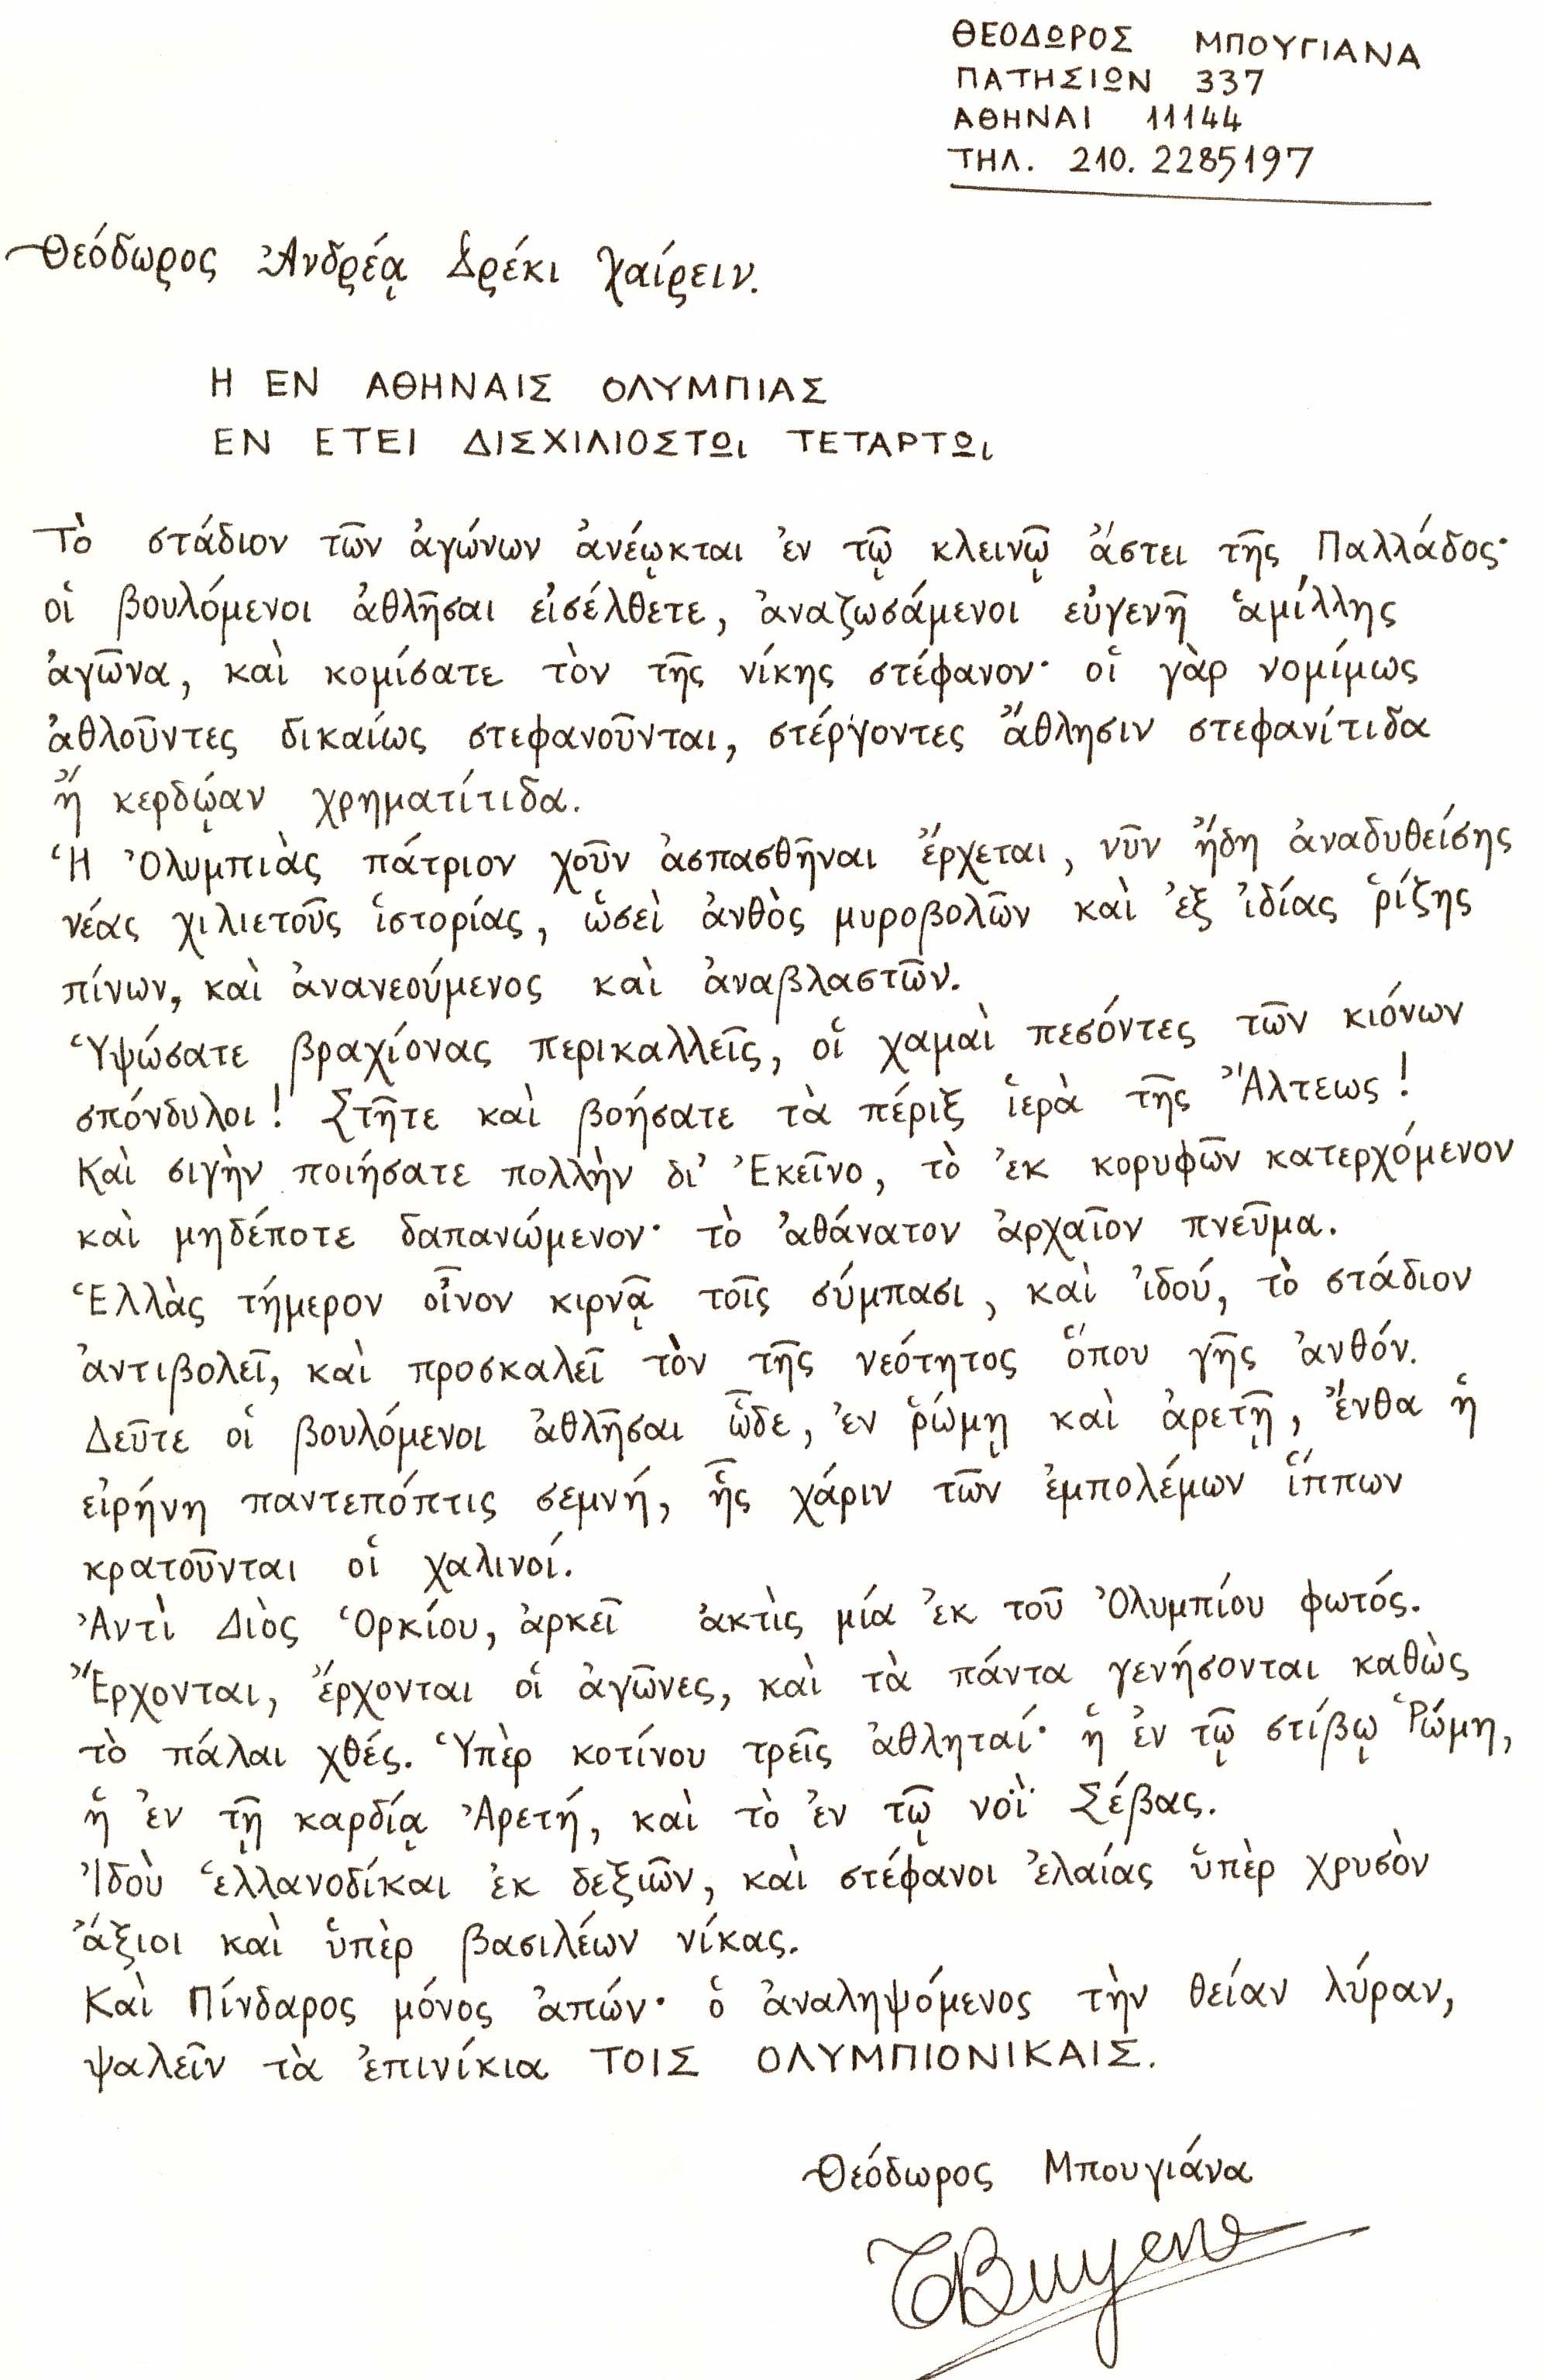 ΘΕΟΔΩΡΟΣ ΜΠΟΥΓΙΑΝΑ
ΠΑΤΗΣΙΩΝ 337
ΑΘΗΝΑΙ 11144
ΤΗΛ. 210. 2285197
Θεόδωρος Ἀνδρέᾳ Δρέκι χαίρειν.
Η ΕΝ ΑΘΗΝΑΙΣ ΟΛΥΜΠΙΑΣ
ΕΝ ΕΤΕΙ ΔΙΣΧΙΛΙΟΣΤΩι ΤΕΤΑΡΤΩι
Τὸ στάδιον τῶν ἀγώνων ἀνέῳκται ἐν τῷ κλεινῷ ἄστει τῆς Παλλάδος·
οἱ βουλόμενοι ἀθλῆσαι εἰσέλθετε, ἀναζωσάμενοι εὐγενῆ ἁμίλλης
ἀγῶνα, καὶ κομίσατε τὸν τῆς νίκης στέφανον· οἱ γὰρ νομίμως
ἀθλοῦντες δικαίως στεφανοῦνται, στέργοντες ἄθλησιν στεφανίτιδα
ἢ κερδῴαν χρηματίτιδα.
Ἡ Ὀλυμπιὰς πάτριον χοῦν ἀσπασθῆναι ἔρχεται, νῦν ἤδη ἀναδυθείσης
νέας χιλιετοῦς ἱστορίας, ὡσεὶ ἀνθὸς μυροβολῶν καὶ ἐξ ἰδίας ῥίζης
πίνων, καὶ ἀνανεούμενος καὶ ἀναβλαστῶν.
Ὑψώσατε βραχίονας περικαλλεῖς, οἱ χαμαὶ πεσόντες τῶν κιόνων
σπόνδυλοι! Στῆτε καὶ βοήσατε τὰ πέριξ ἱερὰ τῆς Ἄλτεως!
Καὶ σιγὴν ποιήσατε πολλὴν δι' Ἐκεῖνο, τὸ ἐκ κορυφῶν κατερχόμενον
καὶ μηδέποτε δαπανώμενον· τὸ ἀθάνατον ἀρχαῖον πνεῦμα.
Ἑλλὰς τήμερον οἶνον κιρνᾷ τοῖς σύμπασι, καὶ ἰδού, τὸ στάδιον
ἀντιβολεῖ, καὶ προσκαλεῖ τὸν τῆς νεότητος ὅπου γῆς ἀνθόν.
Δεῦτε οἱ βουλόμενοι ἀθλῆσαι ὧδε, ἐν ῥώμῃ καὶ ἀρετῇ, ἔνθα ἡ
εἰρήνη παντεπόπτις σεμνή, ἧς χάριν τῶν ἐμπολέμων ἵππων
κρατοῦνται οἱ χαλινοί.
Ἀντὶ Διὸς Ὁρκίου, ἀρκεῖ ἀκτὶς μία ἐκ τοῦ Ὀλυμπίου φωτός.
Ἔρχονται, ἔρχονται οἱ ἀγῶνες, καὶ τὰ πάντα γενήσονται καθὼς
τὸ πάλαι χθές. Ὑπὲρ κοτίνου τρεῖς ἀθληταί· ἡ ἐν τῷ στίβῳ Ῥώμη,
ἡ ἐν τῇ καρδίᾳ Ἀρετή, καὶ τὸ ἐν τῷ νοῒ Σέβας.
Ἰδοὺ ἑλλανοδίκαι ἐκ δεξιῶν, καὶ στέφανοι ἐλαίας ὑπὲρ χρυσὸν
ἄξιοι καὶ ὑπὲρ βασιλέων νίκας.
Καὶ Πίνδαρος μόνος ἀπών· ὁ ἀναληψόμενος τὴν θείαν λύραν,
ψαλεῖν τὰ ἐπινίκια ΤΟΙΣ ΟΛΥΜΠΙΟΝΙΚΑΙΣ.
Θεόδωρος Μπουγιάνα